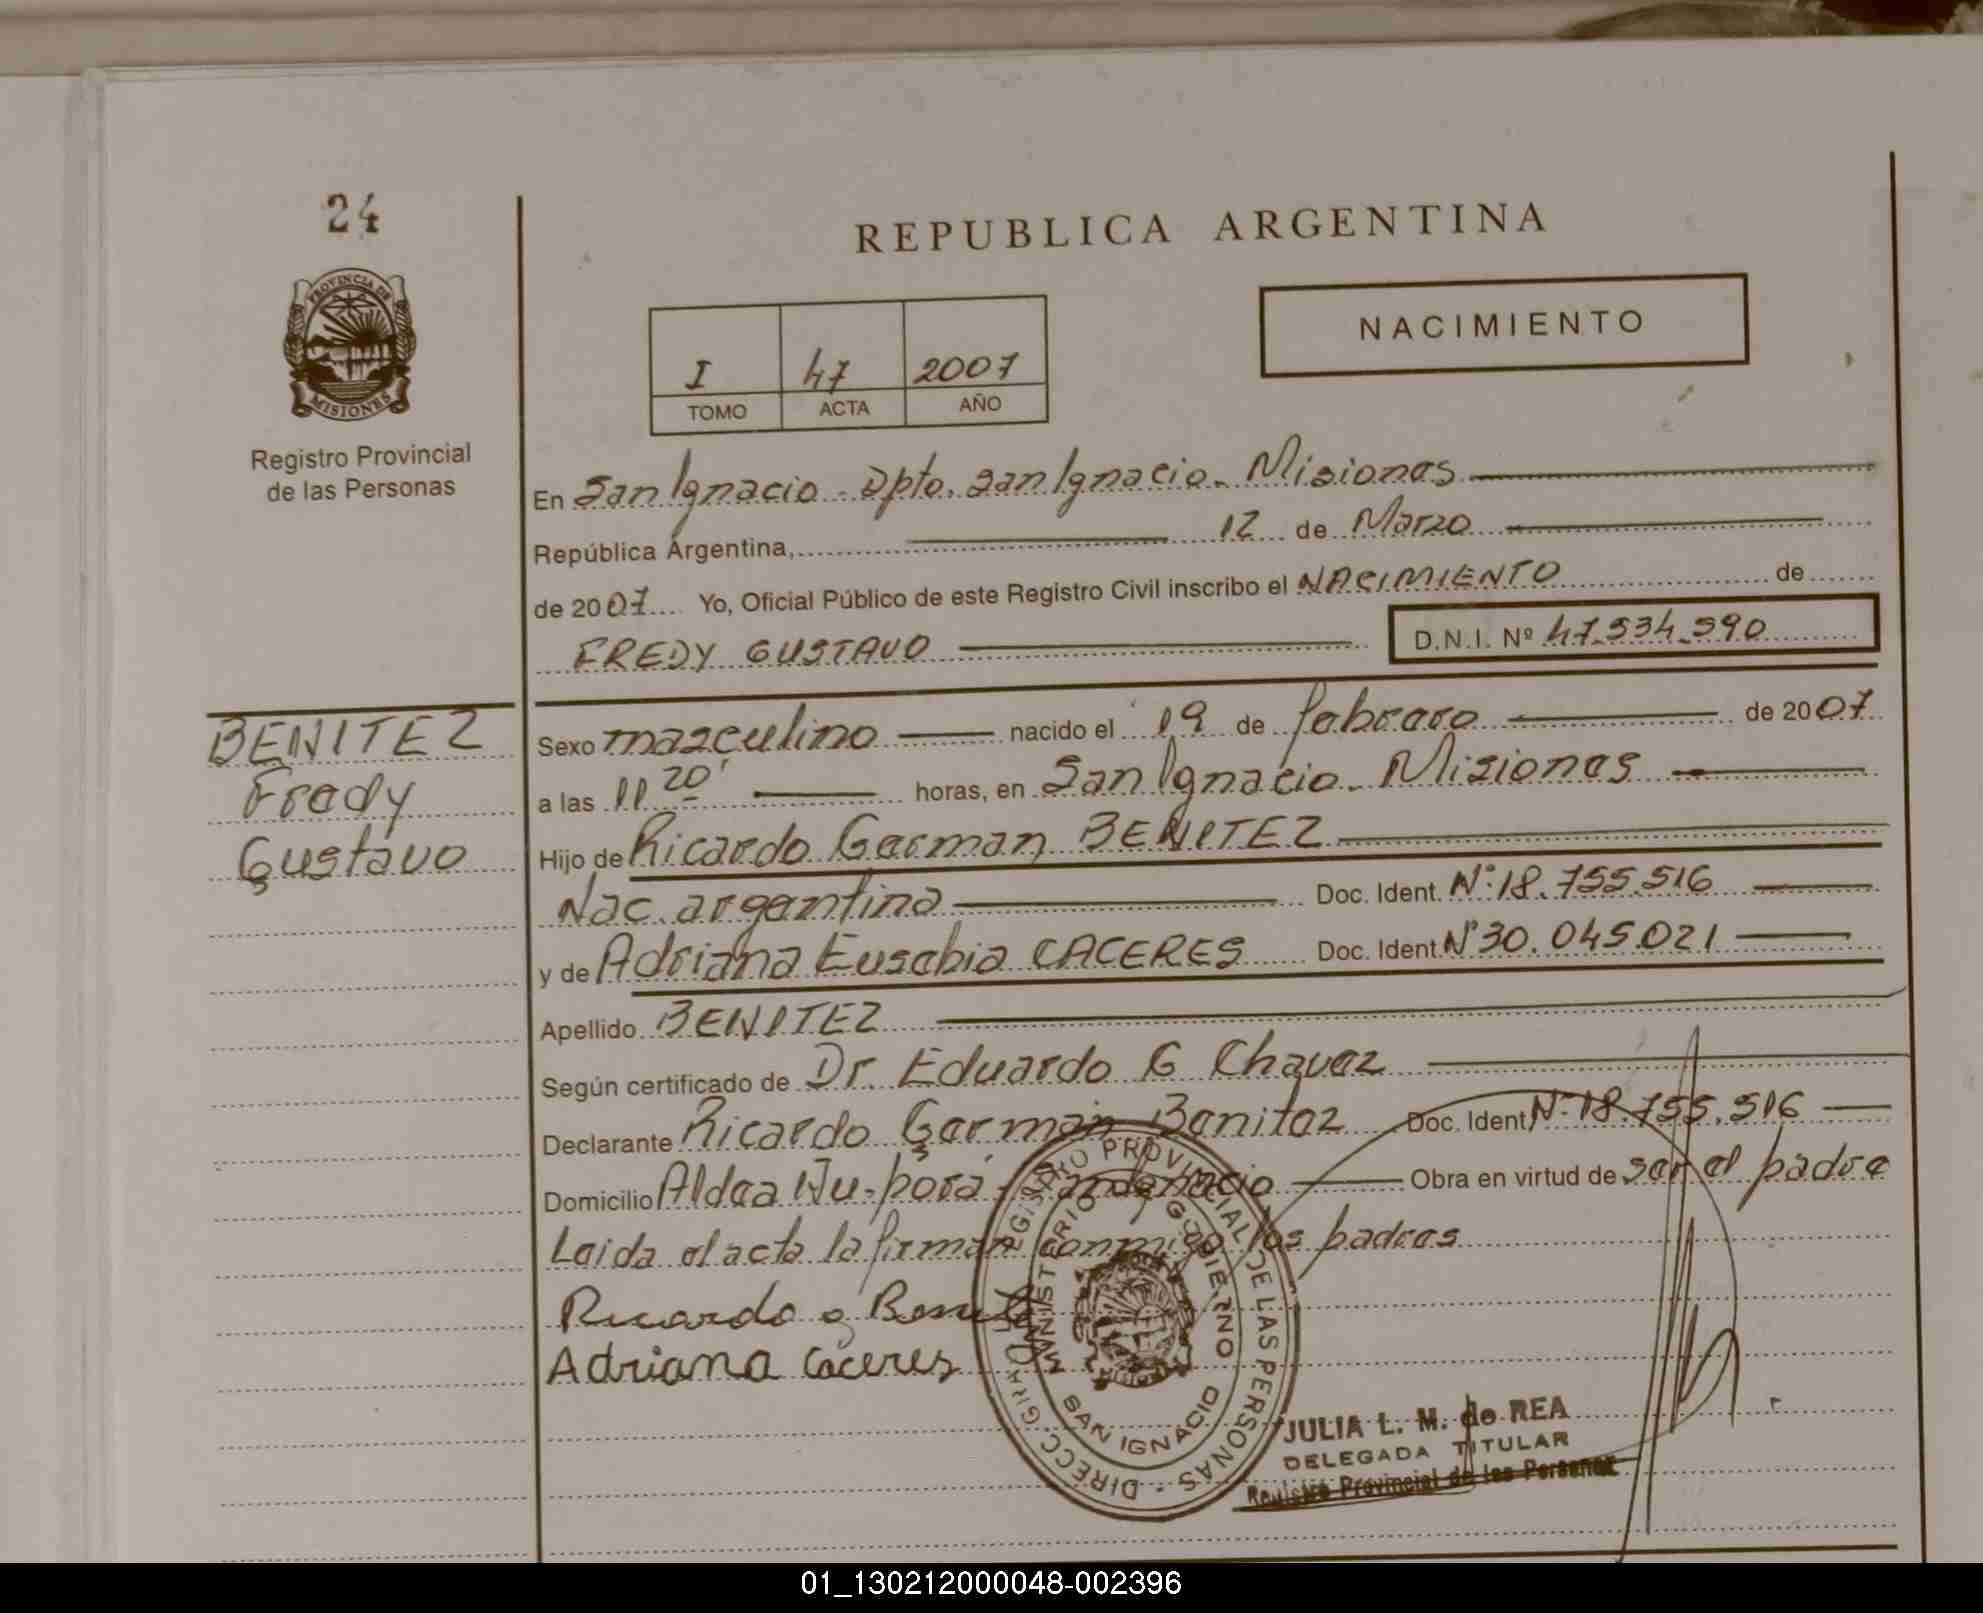 24
PROVINCIA DE
MISIONES
Registro Provincial
de las Personas
REPUBLICA ARGENTINA
I 47 2007
TOMO ACTA AÑO
NACIMIENTO
En San Ignacio - Dpto. San Ignacio - Misiones
República Argentina, 12 de Marzo
de 2007 Yo, Oficial Público de este Registro Civil inscribo el NACIMIENTO de
FREDY GUSTAVO D.N.I. Nº 47.534.590
BENITEZ
Fredy
Gustavo
Sexo masculino nacido el 19 de febrero de 2007
a las 11 20' horas, en San Ignacio - Misiones
Hijo de Ricardo German BENITEZ
Nac. argentina Doc. Ident. Nº 18.755.516
y de Adriana Eusebia CACERES Doc. Ident. Nº 30.045.021
Apellido BENITEZ
Según certificado de Dr. Eduardo G Chavez
Declarante Ricardo Germán Benitez Doc. Ident. Nº 18.755.516
Domicilio Aldea Ñu-porá - San Ignacio Obra en virtud de ser el padre
Leida el acta la firman conmigo los padres
Ricardo G Benitez
Adriana Caceres
DIRECC. GRAL. REGISTRO PROVINCIAL DE LAS PERSONAS
MINISTERIO GOBIERNO
SAN IGNACIO
JULIA L. M. de REA
DELEGADA TITULAR
Registro Provincial de las Personas
01_130212000048-002396